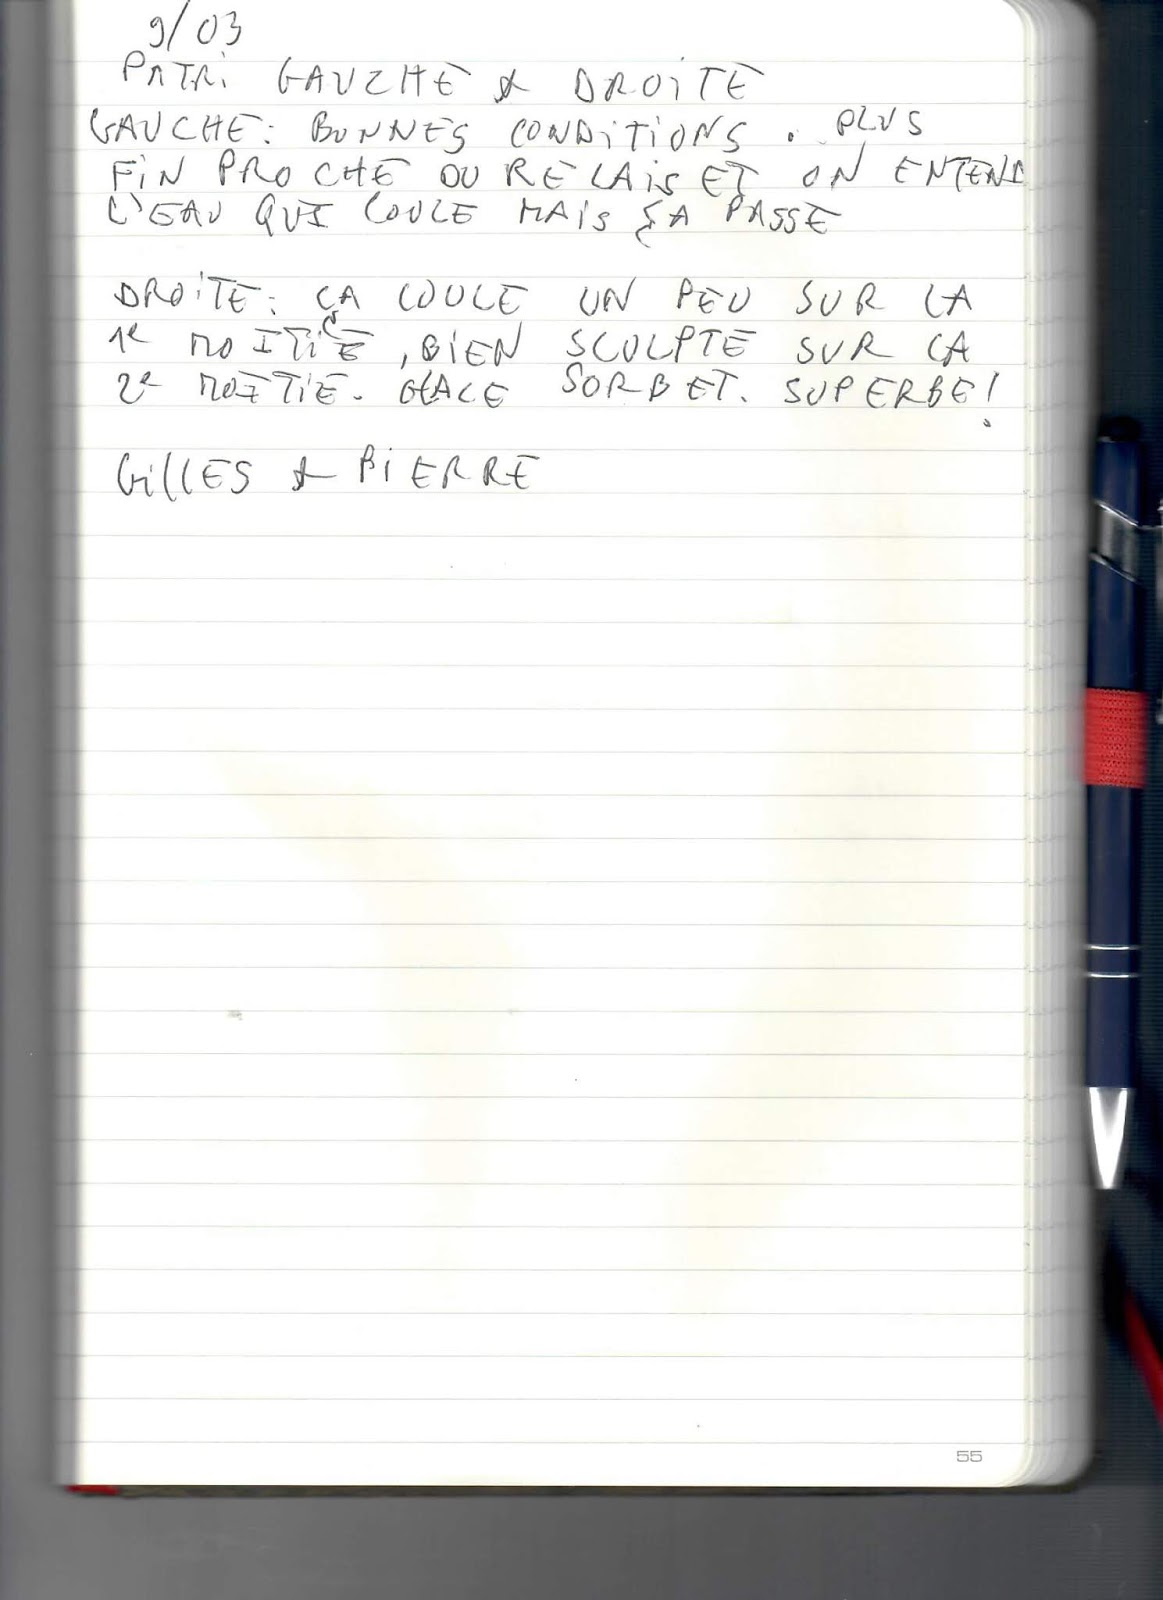 9/03
PATRI GAUCHE & DROITE
GAUCHE: BONNES CONDITIONS. PLUS
FIN PROCHE DU RELAIS ET ON ENTEND
L'EAU QUI COULE MAIS ÇA PASSE
DROITE: ÇA COULE UN PEU SUR LA
1e MOITIÉ, BIEN SCULPTE SUR LA
2e MOITIE. GLACE SORBET. SUPERBE!
GILLES & PIERRE
55